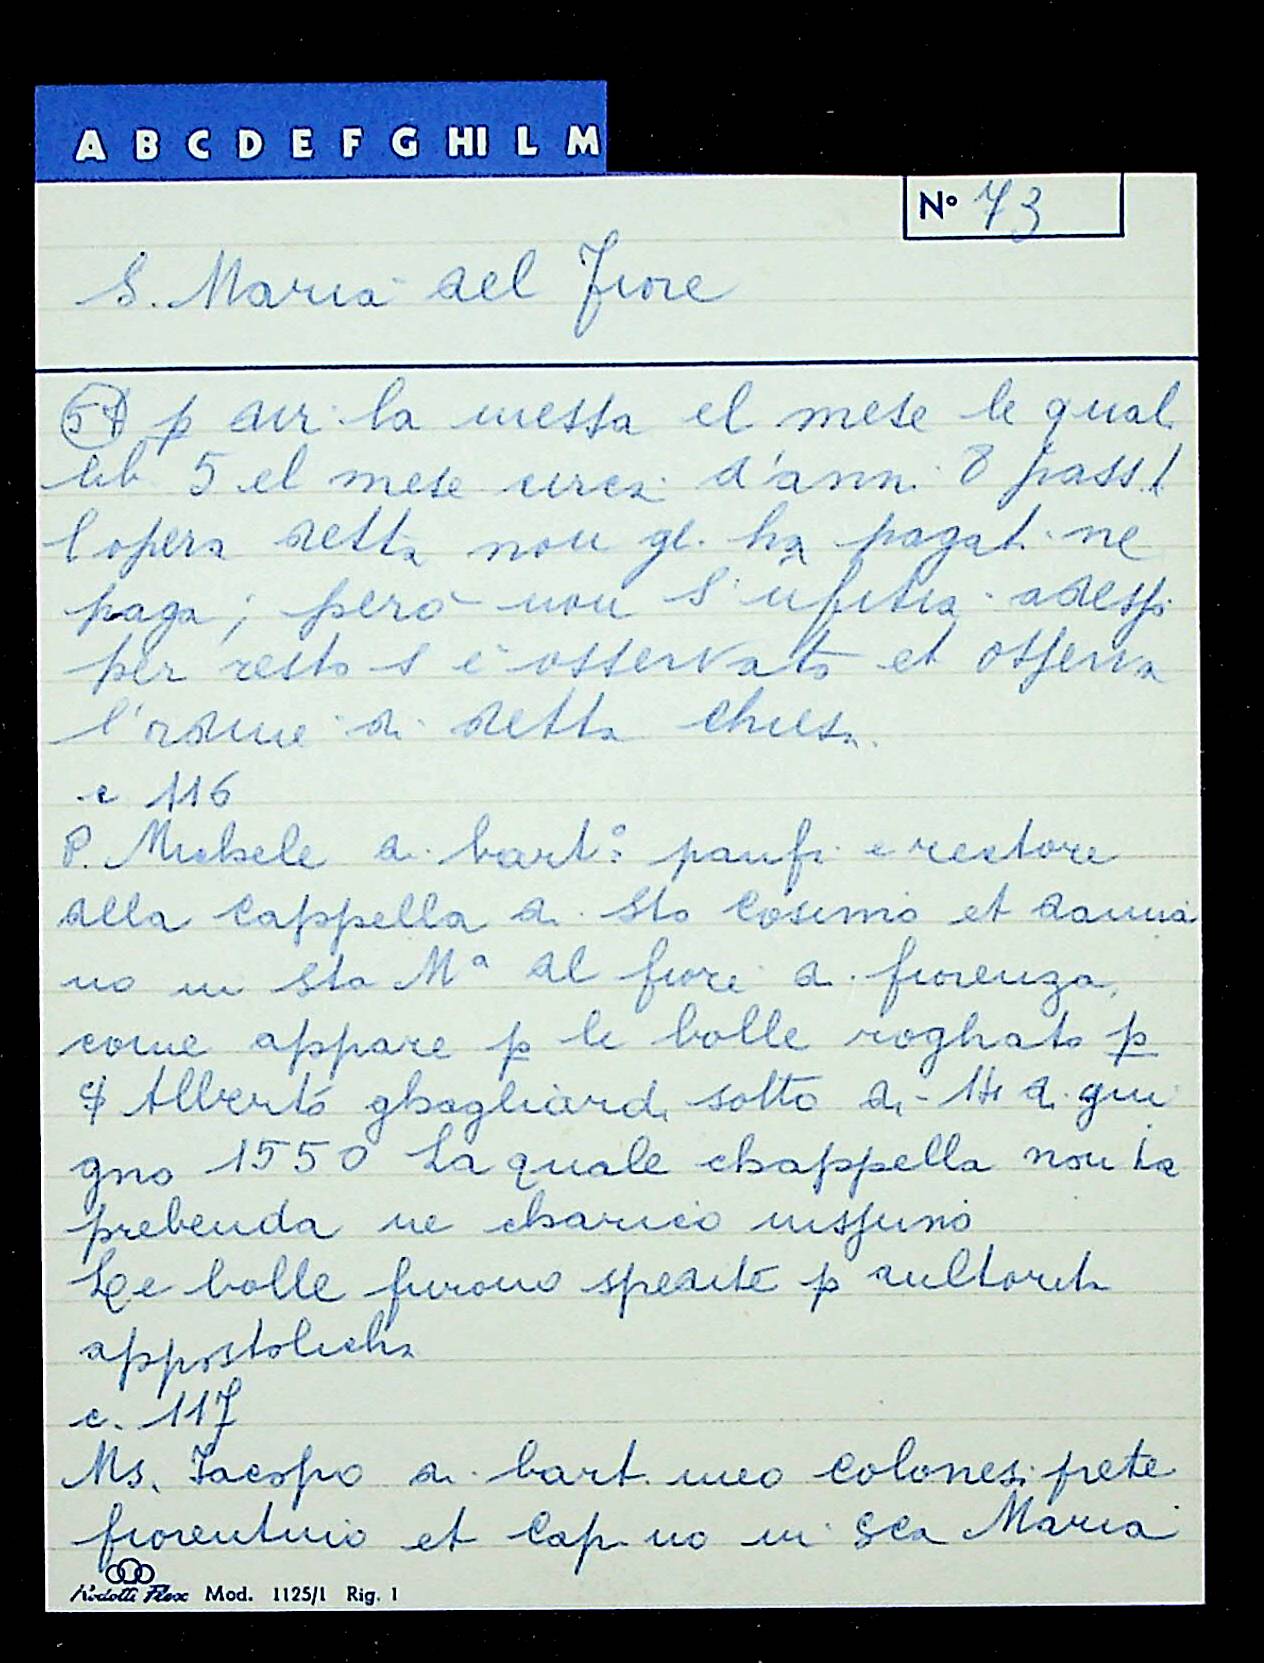 A B C D E F G HI L M
N° 73
S. Maria del Fiore
p dir la messa el mese le qual
lib 5 el mese circa d'anni 8 pass.
l opera detta non gl. ha pagat. ne
paga; però non s ufitia adesso
per resto s è osservato et osserva
l'ordine di detta chiesa.
c 116
P. Michele di bart.° panfi e rectore
della cappella di Sto Cosimo et damia
no in Sta Mª del fiore di fiorenza,
come appare p le bolle roghato p
Alberto ghagliardi sotto di - 14 di giu
gno 1550 La quale chappella non ha
prebenda ne charico nissuno
Le bolle furono spedite p aultorita
appostolicha
c. 117
Ms. Jacopo di bart. meo colonesi prete
fiorentino et cap. no in Sca Maria
Mod. 1125/1 Rig. 1